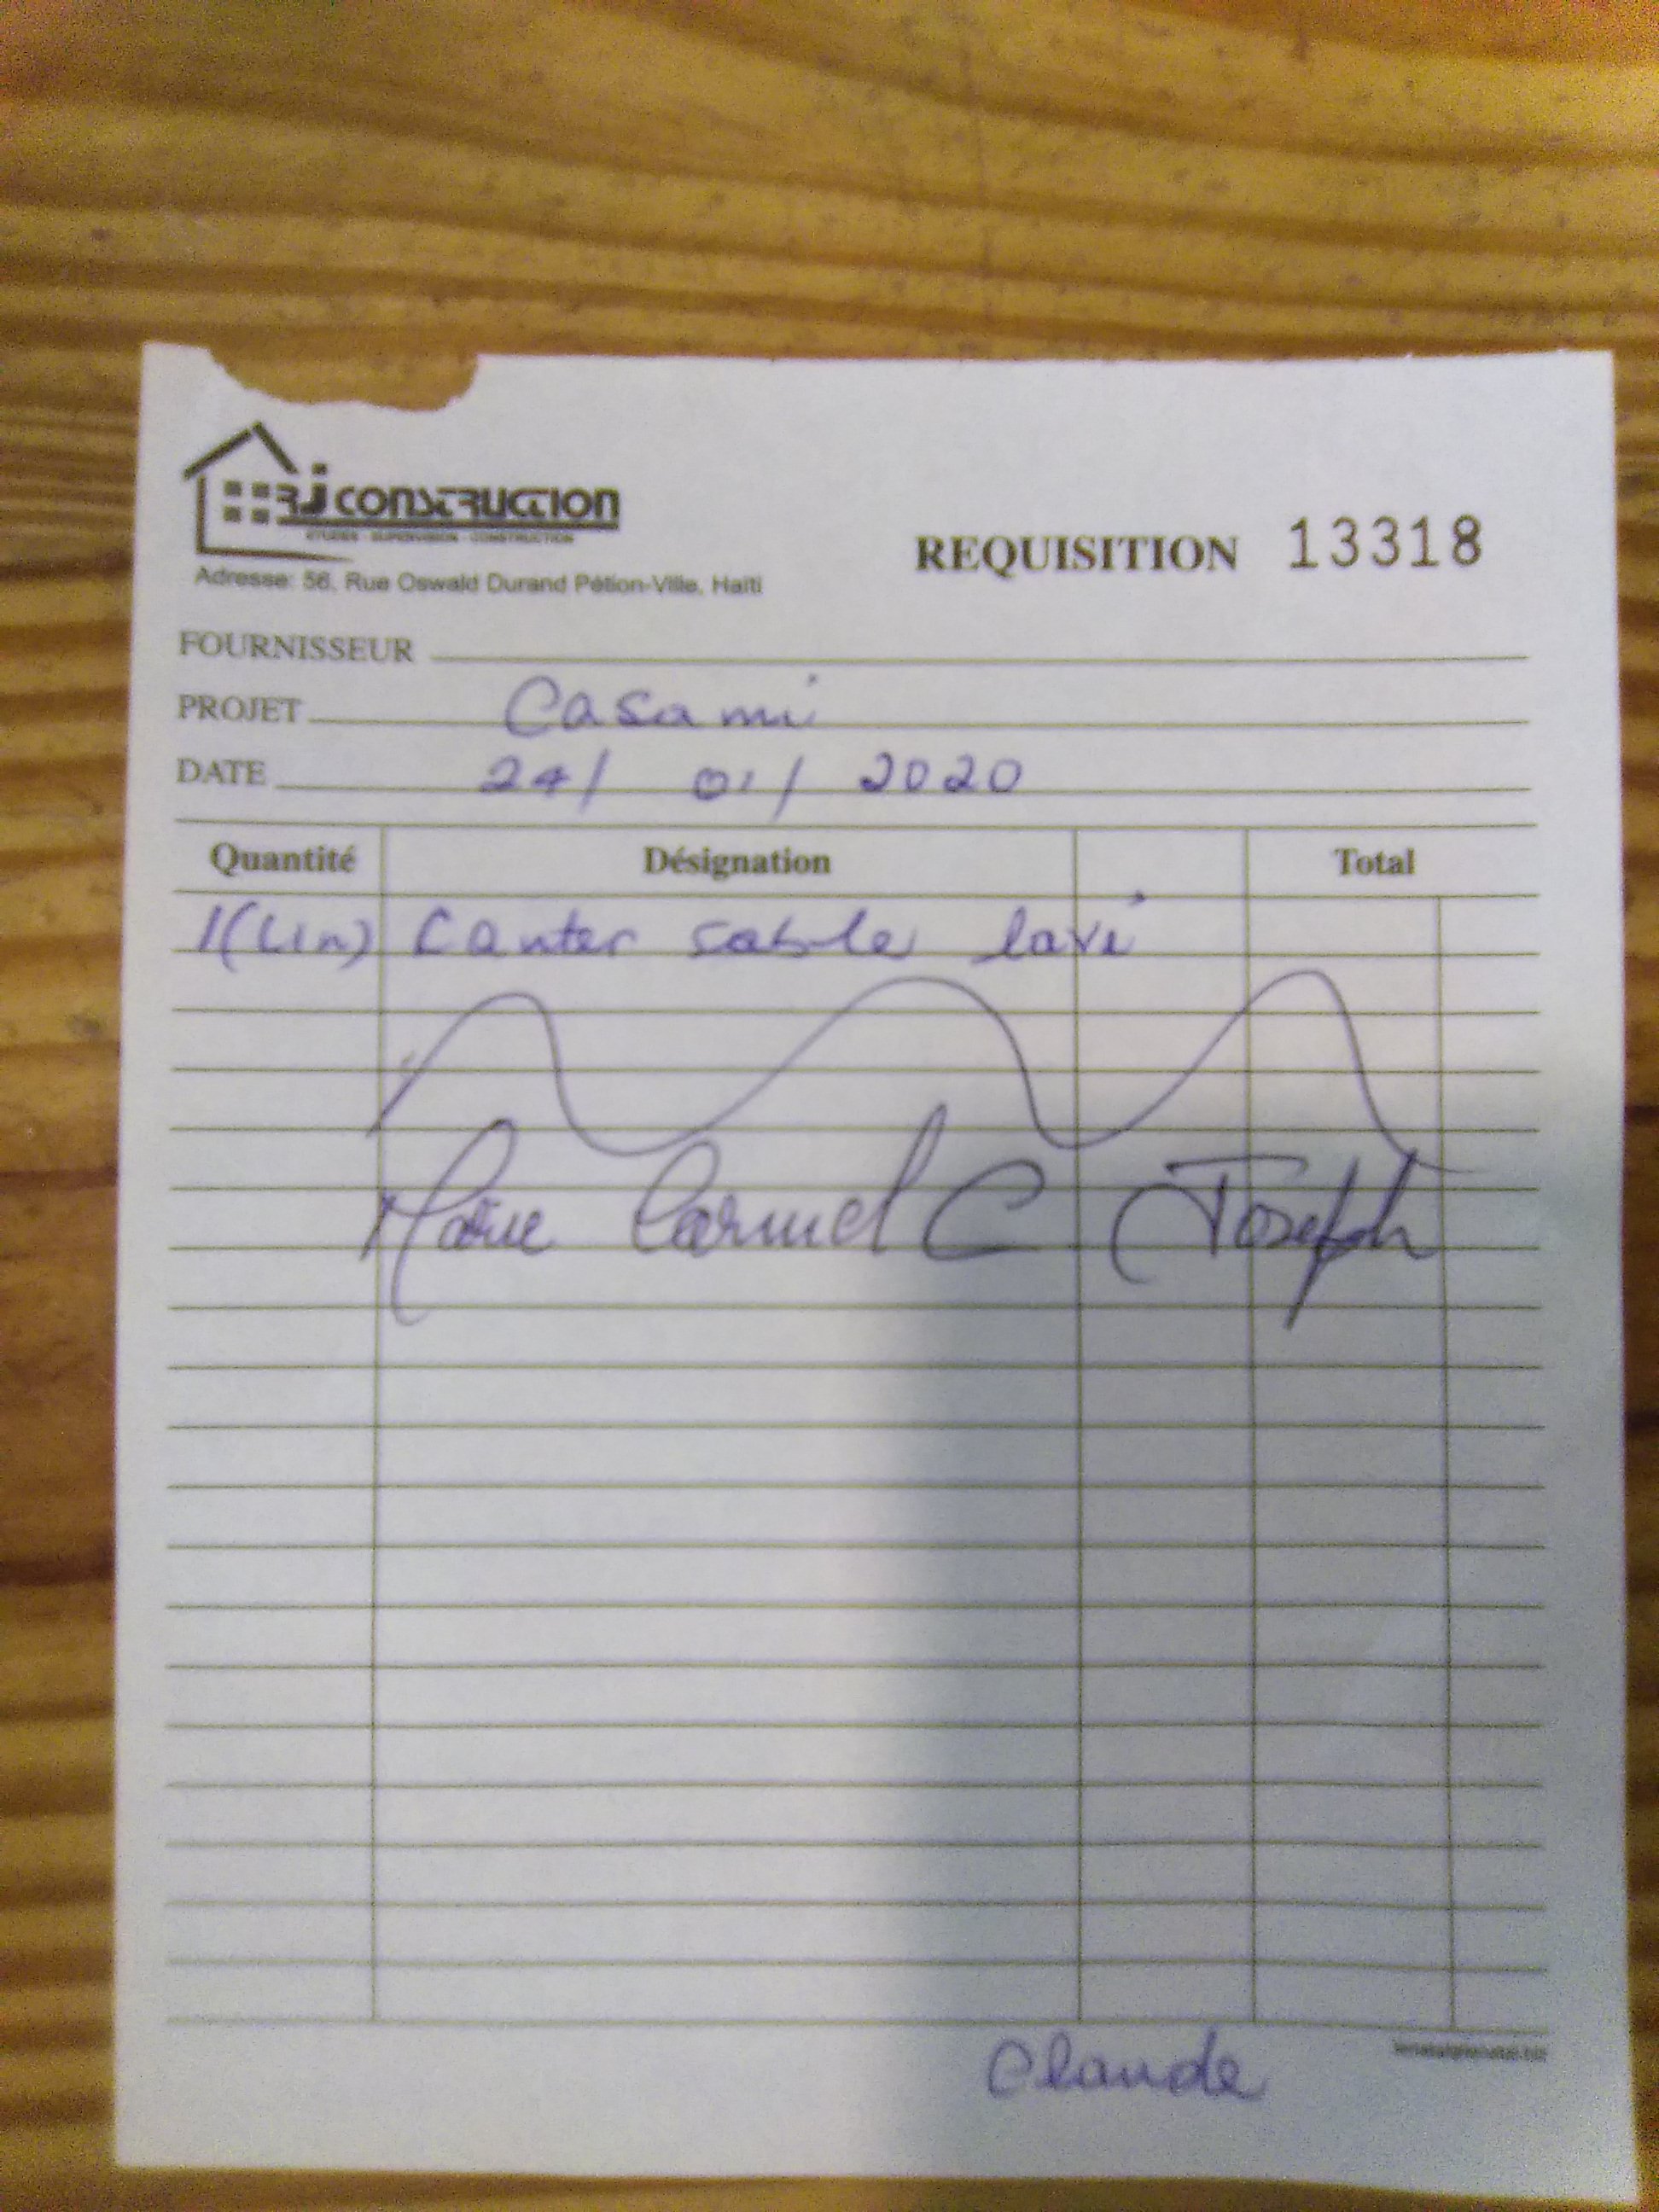 RJ CONSTRUCTION
ETUDES - SUPERVISION - CONSTRUCTION
Adresse: 56, Rue Oswald Durand Pétion-Ville, Haïti
REQUISITION 13318
FOURNISSEUR
PROJET Casami
DATE 24/ 01/ 2020
Quantité Désignation Total
1(Un) Canter sable lavé
Marie Carmel C Joseph
Claude